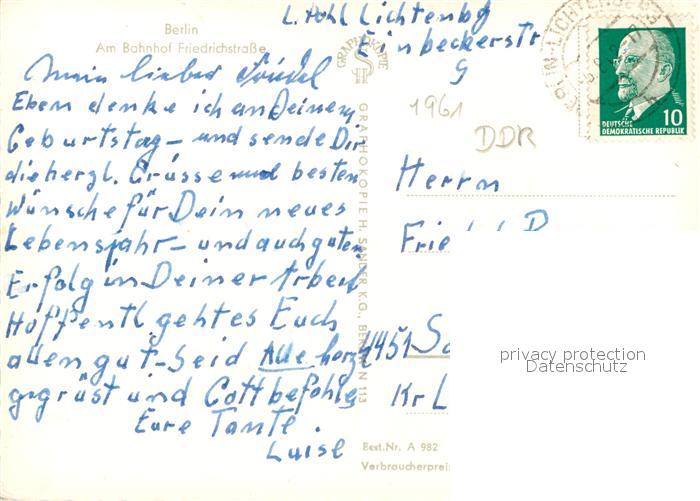 Berlin
Am Bahnhof Friedrichstraße
L. Pohl Lichtenbg
Einbeckerstr
9
Mein lieber
Eben denke ich an Deinen
Geburtstag – und sende Dir
die herzl. Grüsse und besten
Wünsche für Dein neues
Lebensjahr – und auch guten
Erfolg in Deiner Arbeit
Hoffentl. geht es Euch
allen gut – Seid Alle herzl
gegrüst und Gott befohlen
Eure Tante.
Luise
GRAPHOKOPIE
GRAPHOKOPIE H. SANDER K.G., BERLIN N 113
Best.Nr. A 982
Verbraucherpreis
1961
DDR
BERLIN-LICHTENBERG
DEUTSCHE
DEMOKRATISCHE REPUBLIK
10
Herrn
4451
Kr L
privacy protection
Datenschutz